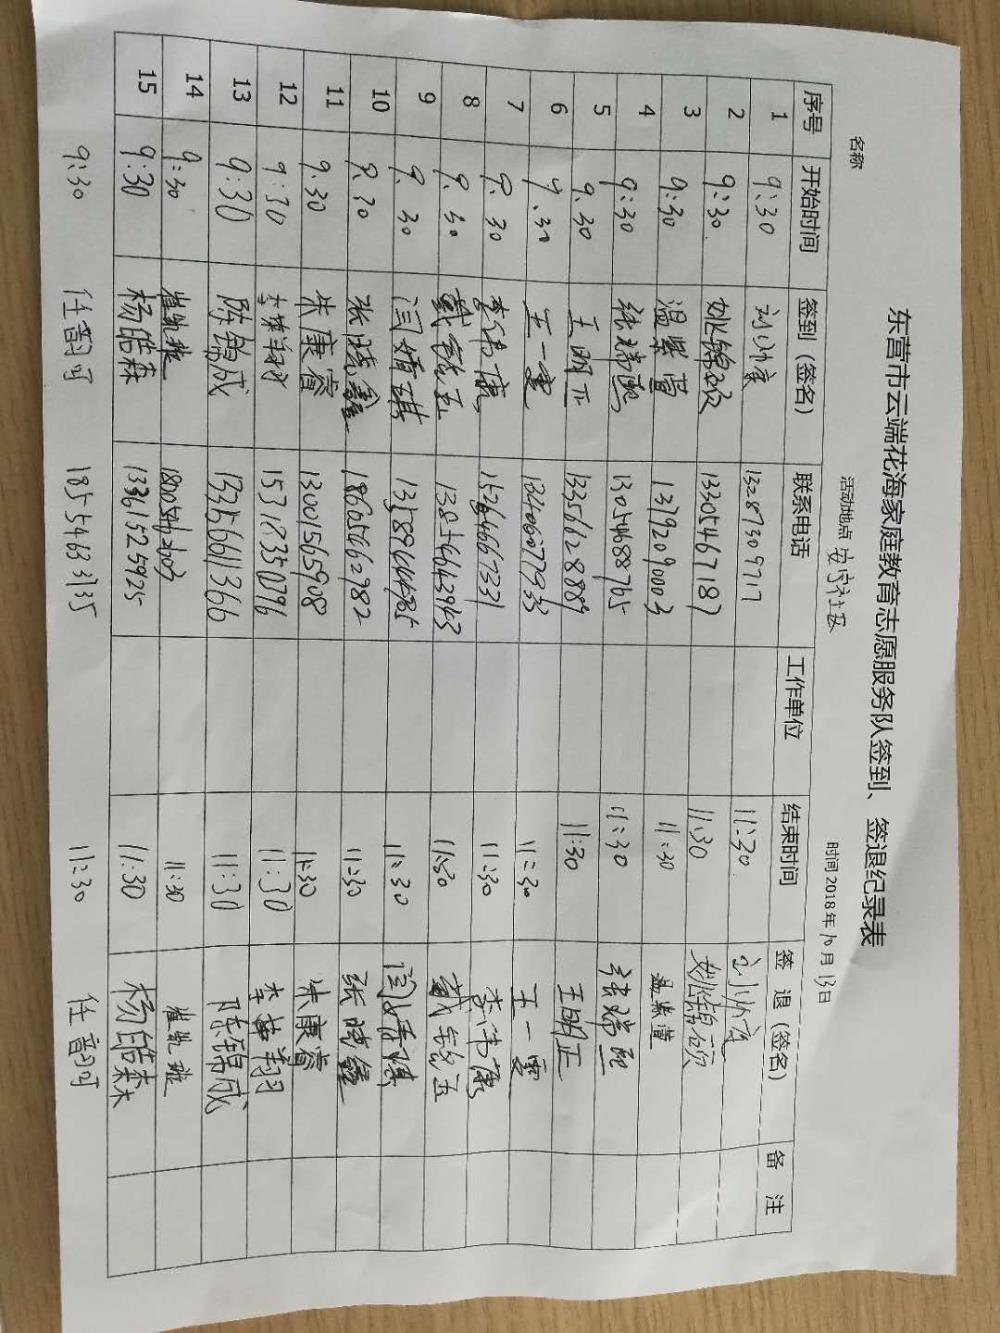 东营市云端花海家庭教育志愿服务队签到、签退纪录表
名称 活动地点 安宁社区 时间 2018年10月13日
序号 开始时间 签到（签名） 联系电话 工作单位 结束时间 签 退（签名） 备 注
1 9:30 13287309717 11:30
2 9:30 姚锦硕 13305467187 11:30 姚锦硕
3 9:30 温紫萱 13792090003 11:30 温紫萱
4 9:30 张瑞熙 13054688765 11:30 张瑞熙
5 9.30 王明正 13356128889 11:30 王明正
6 9.30 王一雯 13460677933 11:30 王一雯
7 9.30 李韦康 15264667331 11:30
8 9.30 戴铭玉 13854664394 11:30 戴铭玉
9 9.30 闫婧祺 13589644485 11:30 闫婧祺
10 9.30 张晓鑫 18605462982 11:30 张晓鑫
11 9.30 朱康睿 13001565908 11:30 朱康睿
12 9:30 李梓翔 15378350796 11:30 李梓翔
13 9:30 陈锦成 13256611366 11:30 陈锦成
14 9:30 崔凯璇 11:30 崔凯璇
15 9:30 杨皓森 13361525925 11:30 杨皓森
9:30 任韵可 18554633135 11:30 任韵可